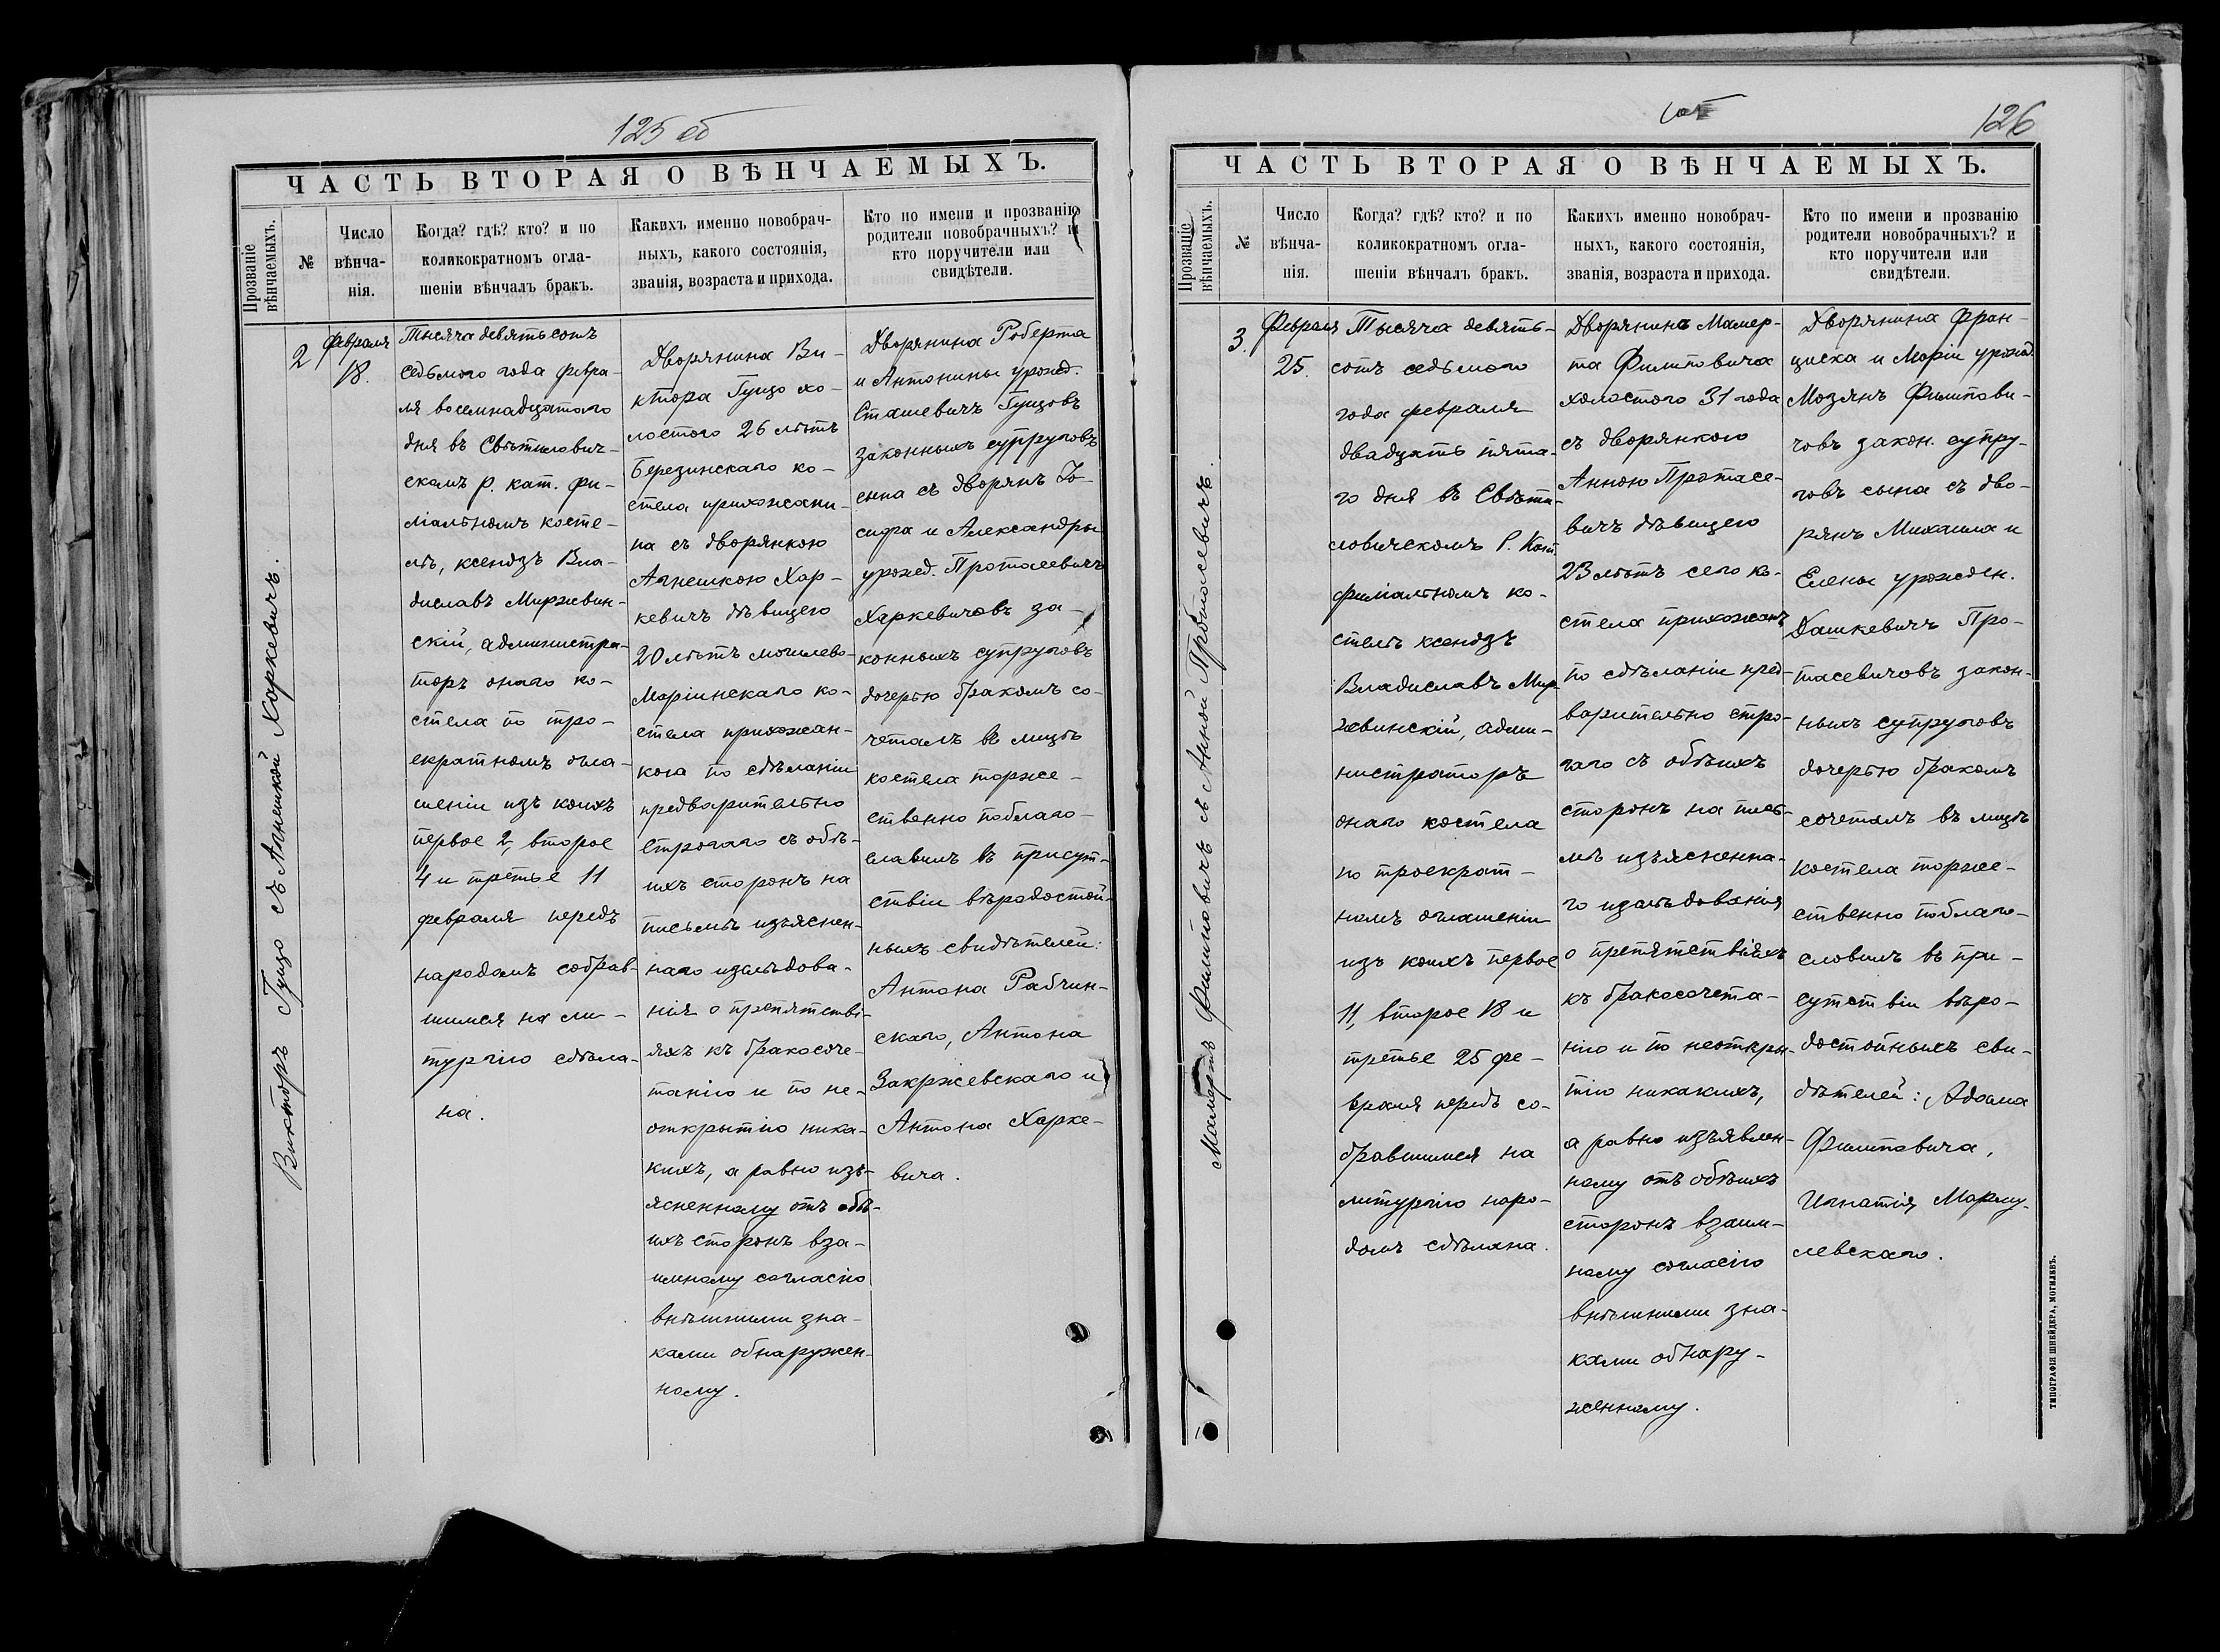 125 об
ЧАСТЬ ВТОРАЯ О ВѢНЧАЕМЫХЪ.
Прозваніе
вѣнчаемыхъ.
№
Число
вѣнча-
нія.
Когда? гдѣ? кто? и по
коликократномъ огла-
шеніи вѣнчалъ бракъ.
Какихъ именно новобрач-
ныхъ, какого состоянія,
званія, возраста и прихода.
Кто по имени и прозванію
родители новобрачныхъ? и
кто поручители или
свидѣтели.
Викторъ Гуцо съ Агнешкой Харкевичъ.
2
Февраля
18.
Тысяча девятьсотъ
седьмого года февра-
ля восемнадцатаго
дня въ Свѣтилович-
скомъ р. кат. фи-
ліальномъ косте-
лѣ, ксендзъ Вла-
диславъ Миржвин-
скій, администра-
торъ онаго ко-
стела по трое-
екратномъ огла-
шеніи изъ коихъ
первое 2, второе
4 и третье 11
февраля передъ
народомъ собрав-
шимся на ли-
тургію сдѣла-
на.
Дворянина Ви-
ктора Гуцо хо-
лостого 26 лѣтъ
Березинскаго ко-
стела прихожани-
на съ дворянкою
Агнешкою Хар-
кевичъ дѣвицею
20 лѣтъ могилево-
Маріинскаго ко-
стела прихожан-
кою по сдѣланіи
предварительно
строгаго съ обѣ-
ихъ сторонъ на
письмѣ изъяснен-
наго изслѣдова-
нія о препятстві-
яхъ къ бракосоче-
танію и по не-
открытію ника-
кихъ, а равно изъ-
ясненному отъ обѣ-
ихъ сторонъ вза-
имному согласію
внѣшними зна-
ками обнаружен-
ному.
Дворянина Роберта
и Антонины урожд.
Сташевичъ Гуцовъ
законныхъ супруговъ
сына съ дворянъ Іо-
сифа и Александры
урожд. Протасевичъ
Харкевичовъ за-
конныхъ супруговъ
дочерью бракомъ со-
четалъ въ лицѣ
костела торже-
ственно поблаго-
славилъ въ присут-
ствіи вѣродостой-
ныхъ свидѣтелей:
Антона Рабчин-
скаго, Антона
Закржевскаго и
Антона Харке-
вича.
126
ЧАСТЬ ВТОРАЯ О ВѢНЧАЕМЫХЪ.
Прозваніе
вѣнчаемыхъ.
№
Число
вѣнча-
нія.
Когда? гдѣ? кто? и по
коликократномъ огла-
шеніи вѣнчалъ бракъ.
Какихъ именно новобрач-
ныхъ, какого состоянія,
званія, возраста и прихода.
Кто по имени и прозванію
родители новобрачныхъ? и
кто поручители или
свидѣтели.
Мамертъ Филиповичъ съ Анной Протасевичъ.
3.
Февраля
25.
Тысяча девять-
сотъ седьмого
года февраля
двадцать пята-
го дня въ Свѣти-
ловичскомъ Р. Кат.
филіальномъ ко-
стелѣ ксендзъ
Владиславъ Мир-
жвинскій, адми-
нистраторъ
онаго костела
по троекрат-
номъ оглашеніи
изъ коихъ первое
11, второе 18 и
третье 25 фе-
враля передъ со-
бравшимся на
литургію наро-
домъ сдѣлана.
Дворянина Мамер-
та Филиповича
холостого 31 года
съ дворянкою
Анною Протасе-
вичъ дѣвицею
23 лѣтъ сего ко-
стела прихожанъ
по сдѣланіи пред-
варительно стро-
гаго съ обѣихъ
сторонъ на пись-
мѣ изъясненна-
го изслѣдованія
о препятствіяхъ
къ бракосочета-
нію и по неоткры-
тію никакихъ,
а равно изъявлен-
ному отъ обѣихъ
сторонъ взаим-
ному согласію
внѣшними зна-
ками обнару-
женному.
Дворянина Фран-
циска и Маріи урожд.
Мозянъ Филипови-
човъ закон. супру-
говъ сына съ дво-
рянъ Михаила и
Елены урожден.
Дашкевичъ Про-
тасевичовъ закон-
ныхъ супруговъ
дочерью бракомъ
сочеталъ въ лицѣ
костела торже-
ственно поблаго-
словилъ въ при-
сутствіи вѣро-
достойныхъ сви-
дѣтелей: Адама
Филиповича,
Игнатія Марцу-
левскаго.
ТИПОГРАФІЯ ШНЕЙДЕРА, МОГИЛЕВЪ.